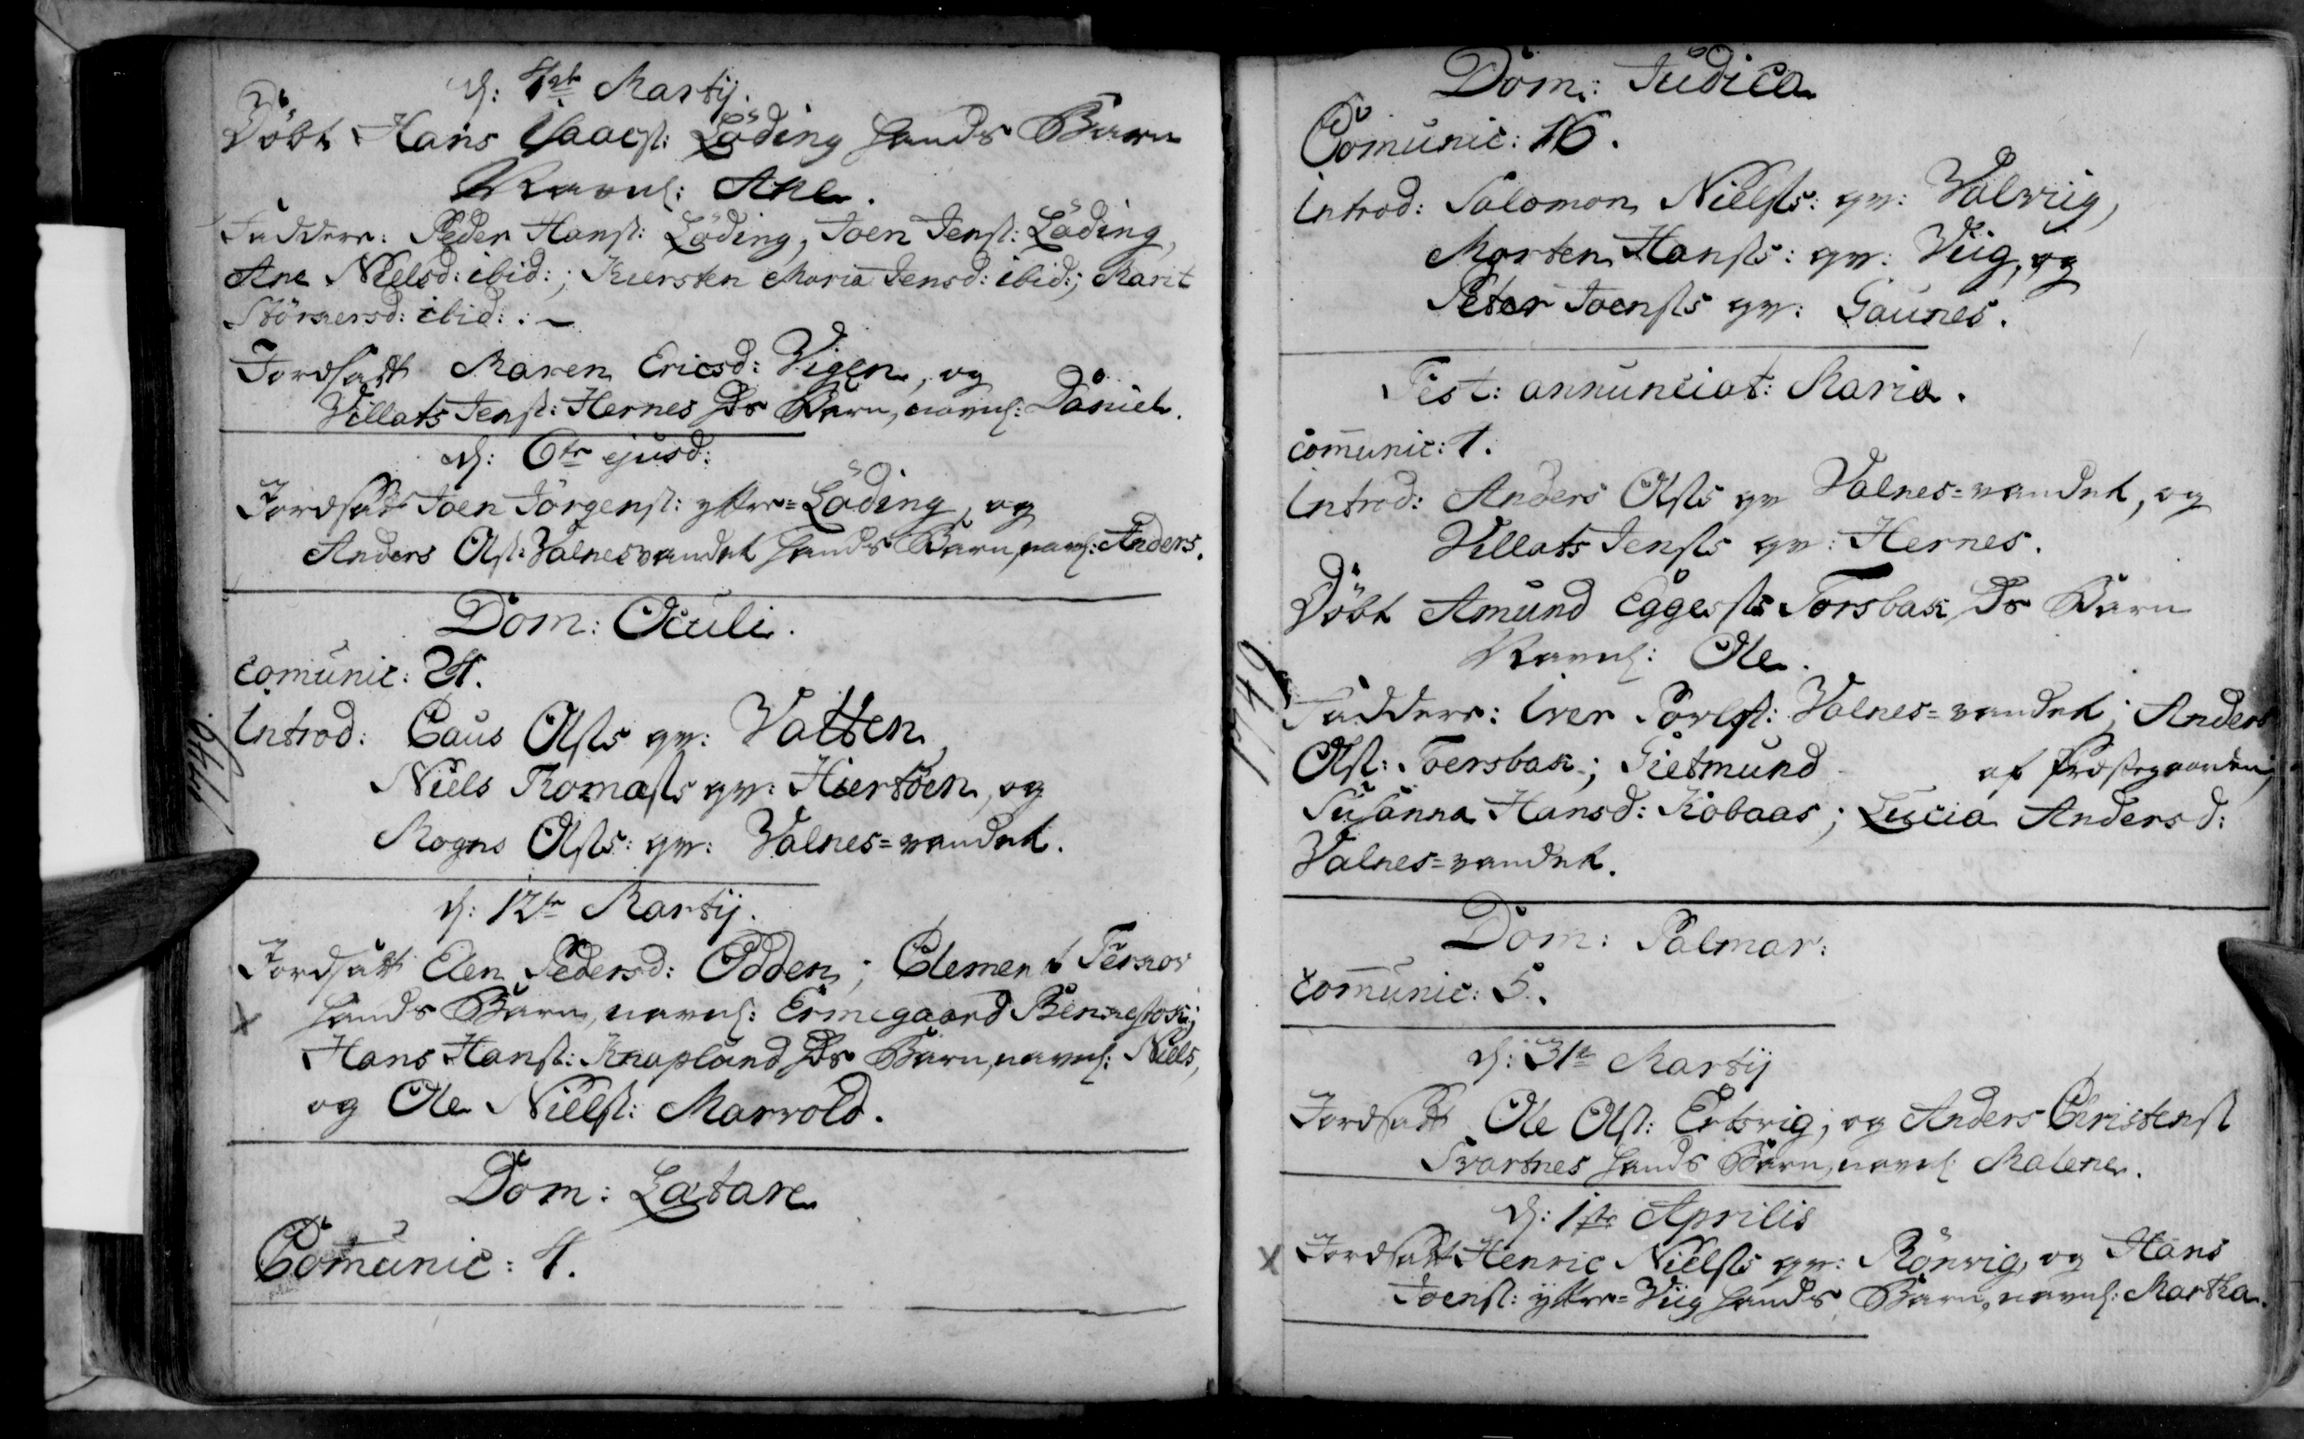 d: 4de Martij.
Döbt Hans Isaacs: Löding hands Barn
Navnl: Ane.
Faddere: Peder Hans: Löding, Joen Jens: Löding,
Ane Nielsd: ibid:; Kiersten Maria Jensd: ibid:; Marit
Störkersd: ibid: :-
Jordsatt Maren Ericsd: Vigen, og
Villats Jens: Hernes hs Barn, navnl: Daniel.
d: 6te ejusd:
Jordsatt Joen Jörgens: yttre=Löding, og
Anders Ols: Valnesvandet hands Barn, navnl: Anders.
Dom: Oculi.
Comunic: 24.
Introd: Caus Olss qv: Vatten,
Niels Thomass qv: Hiertöen, og
Mogns Olss: qv: Valnes=vandet.
d: 12te Martij.
Jordsatt Elen Pedersd: Odden; Clement
hands Barn, navnl: Ermegaard
Hans Hans: Knapland hs Barn, navnl: Niels,
og Ole Niels: Marvold.
Dom: Lætare
Comunic: 4.
1749
Dom: Judica
Comunic: 16.
Introd: Salomon Nielss: qv: Valviig,
Morten Hanss: qv: Viig, og
Peter Joenss qv: Gaunes.
Fest: annunciat: Mariæ.
comunic: 1.
Introd: Anders Olss qv Valnes=vandet, og
Villats Jenss qv: Hernes.
Döbt Amund Eggerss Torsbak hs Barn
Navnl: Ole.
Faddere: Iver Povels: Valnes=vandet; Anders
Ols: Toersbak; Gietmund af Præstegaarden;
Susanna Hansd: Kobaas; Lucia Andersd:
Valnes=vandet.
Dom: Palmar:
Comunic: 5.
d: 31te Martij
Jordsatt Ole Ols: Ertsvig; og Anders Christens
Svartnes hands Barn, navnl: Malene.
d: 1ste Aprilis
Jordsatt Henric Nielss qv: Rönvig, og Hans
Joens: yttre=Viig hands Barn, navnl: Martha.
1749